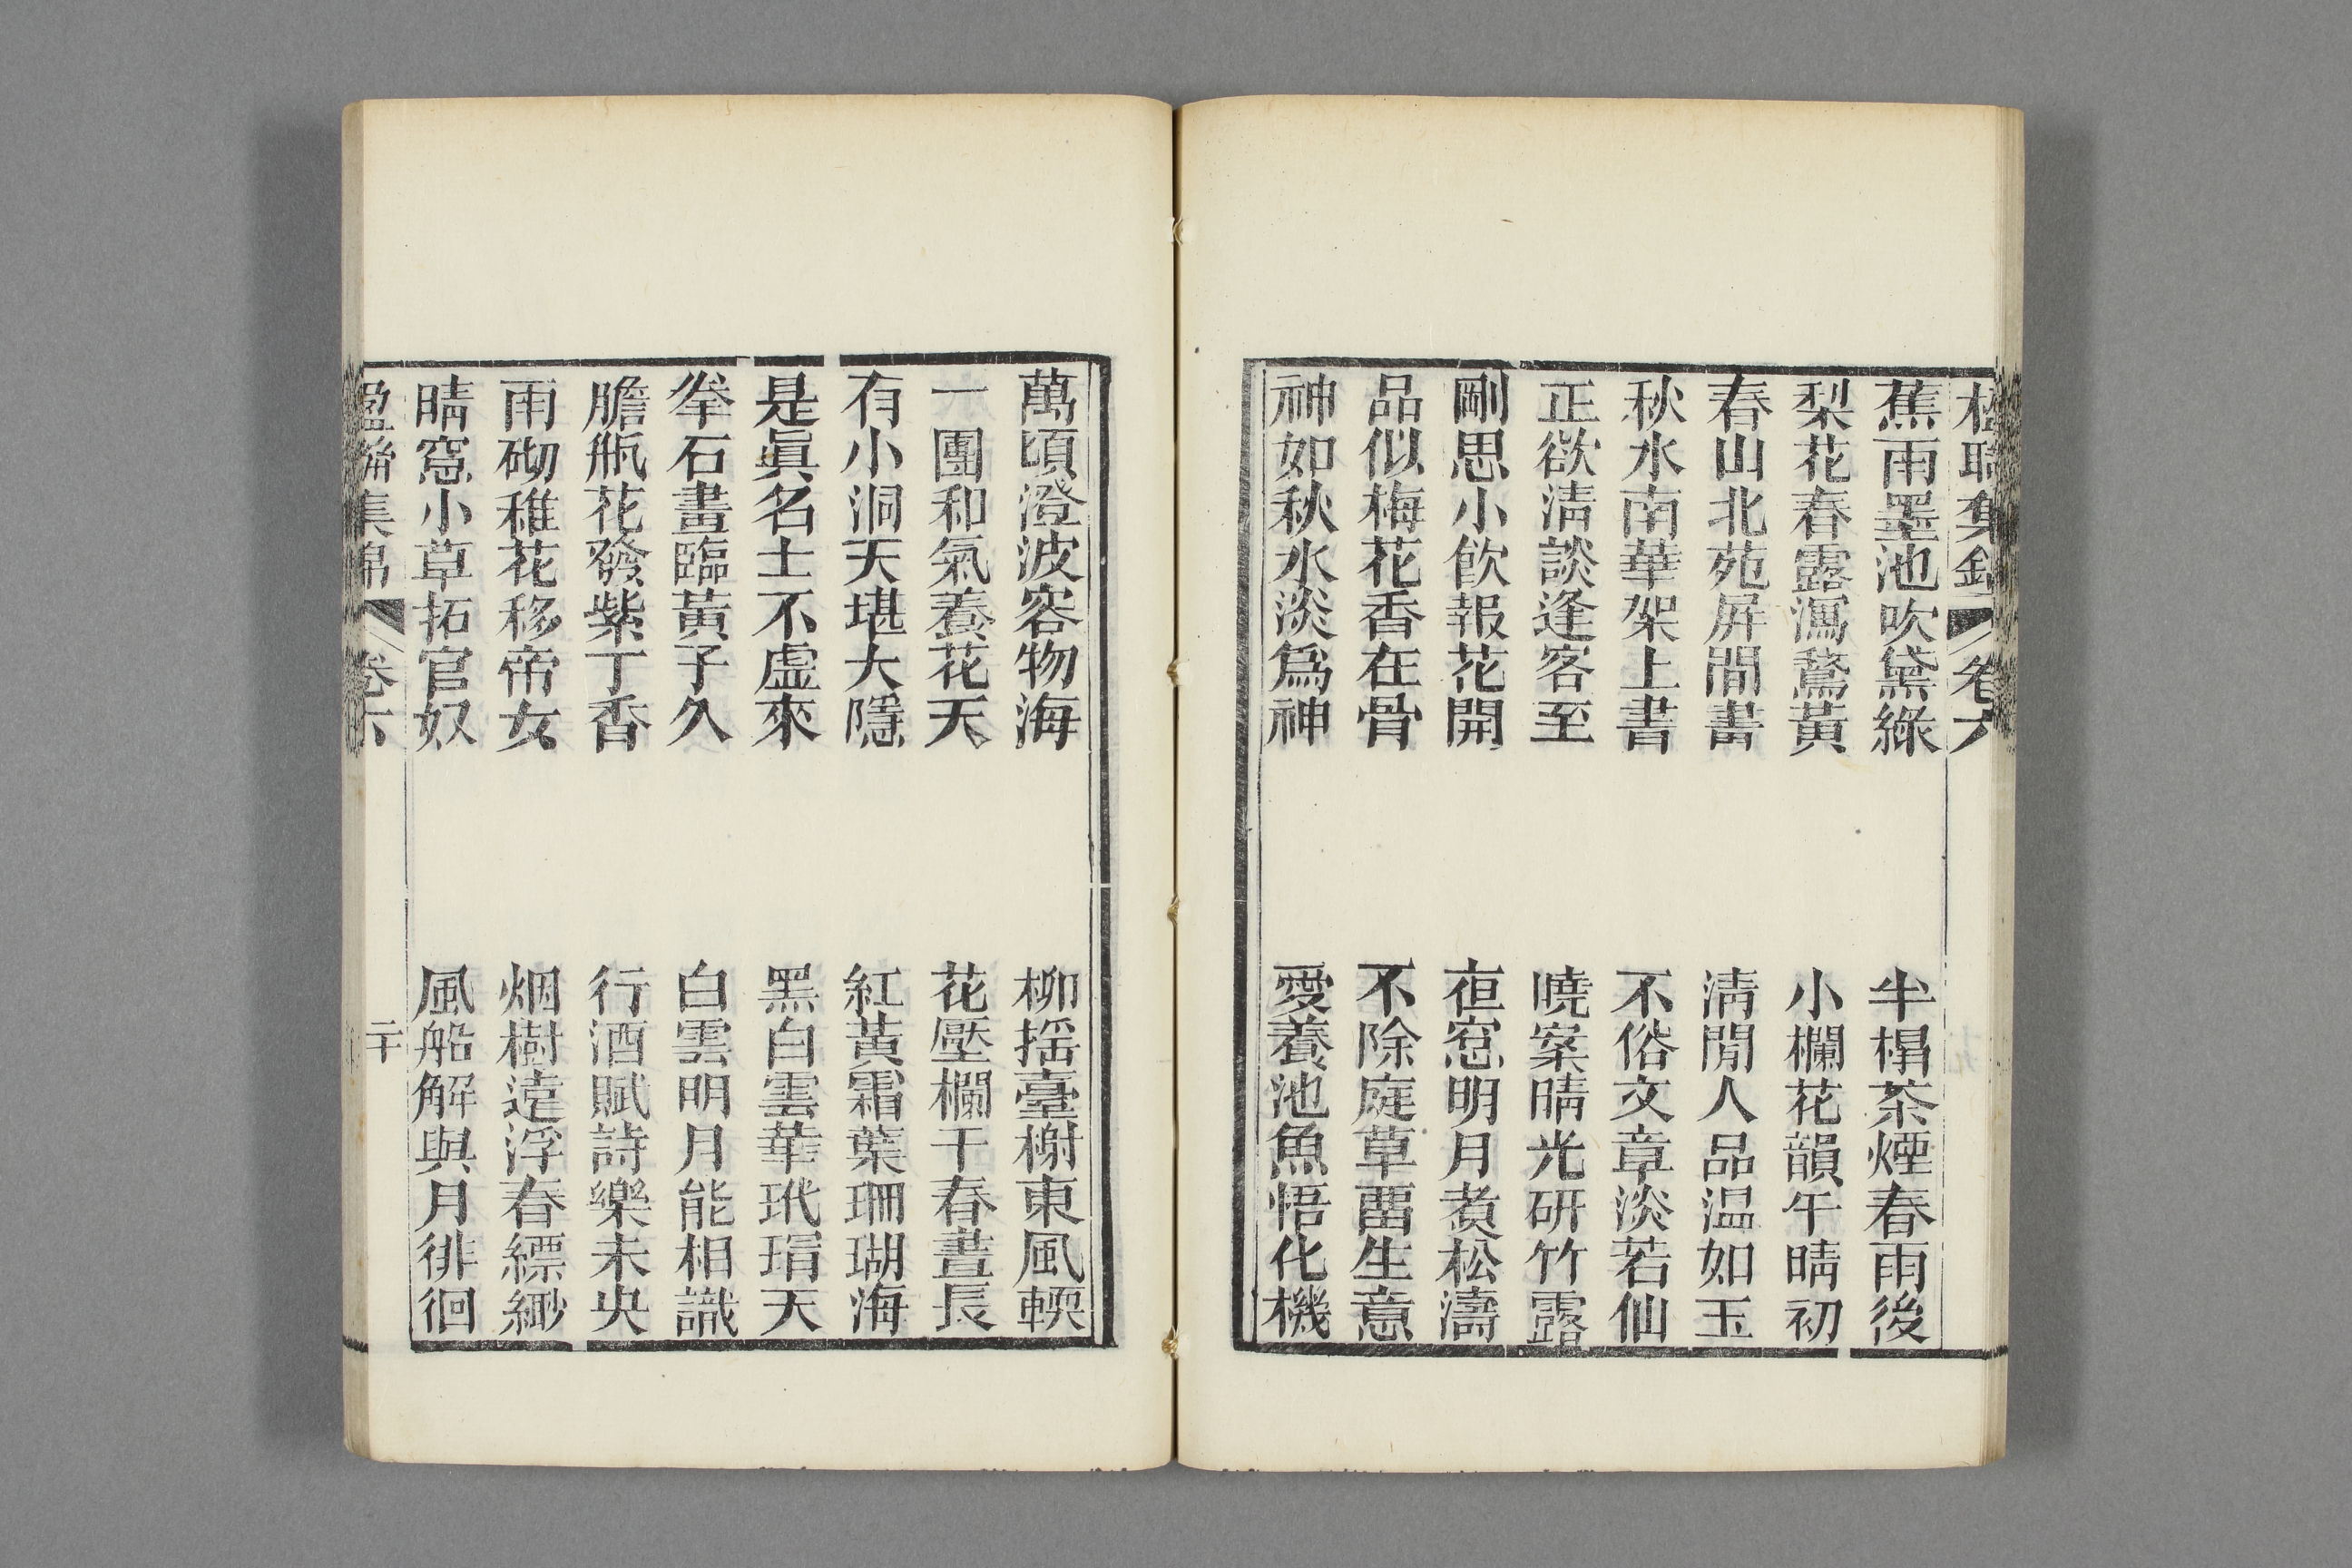 楹聯集錦 卷六
蕉雨墨池吹黛綠 半榻茶煙春雨後
梨花春露瀉鵞黃 小欄花韻午晴初
春山北苑屏間畫 淸閒人品温如玉
秋水南華架上書 不俗文章淡若仙
正欲淸談逢客至 曉案晴光研竹露
剛思小飮報花開 夜窓明月煑松濤
品似梅花香在骨 不除庭草畱生意
神如秋水淡爲神 愛養池魚悟化機
萬頃澄波容物海 柳揺臺榭東風輭
一團和氣養花天 花壓欄干春晝長
有小洞天堪大隱 紅黃霜葉珊瑚海
是眞名士不虛來 黑白雲華玳瑁天
拳石畫臨黃子久 白雲明月能相識
膽瓶花發紫丁香 行酒賦詩樂未央
雨砌稚花移帝女 烟樹遠浮春縹緲
晴窓小草拓官奴 風船解與月徘徊
楹聯集錦 卷六 二十